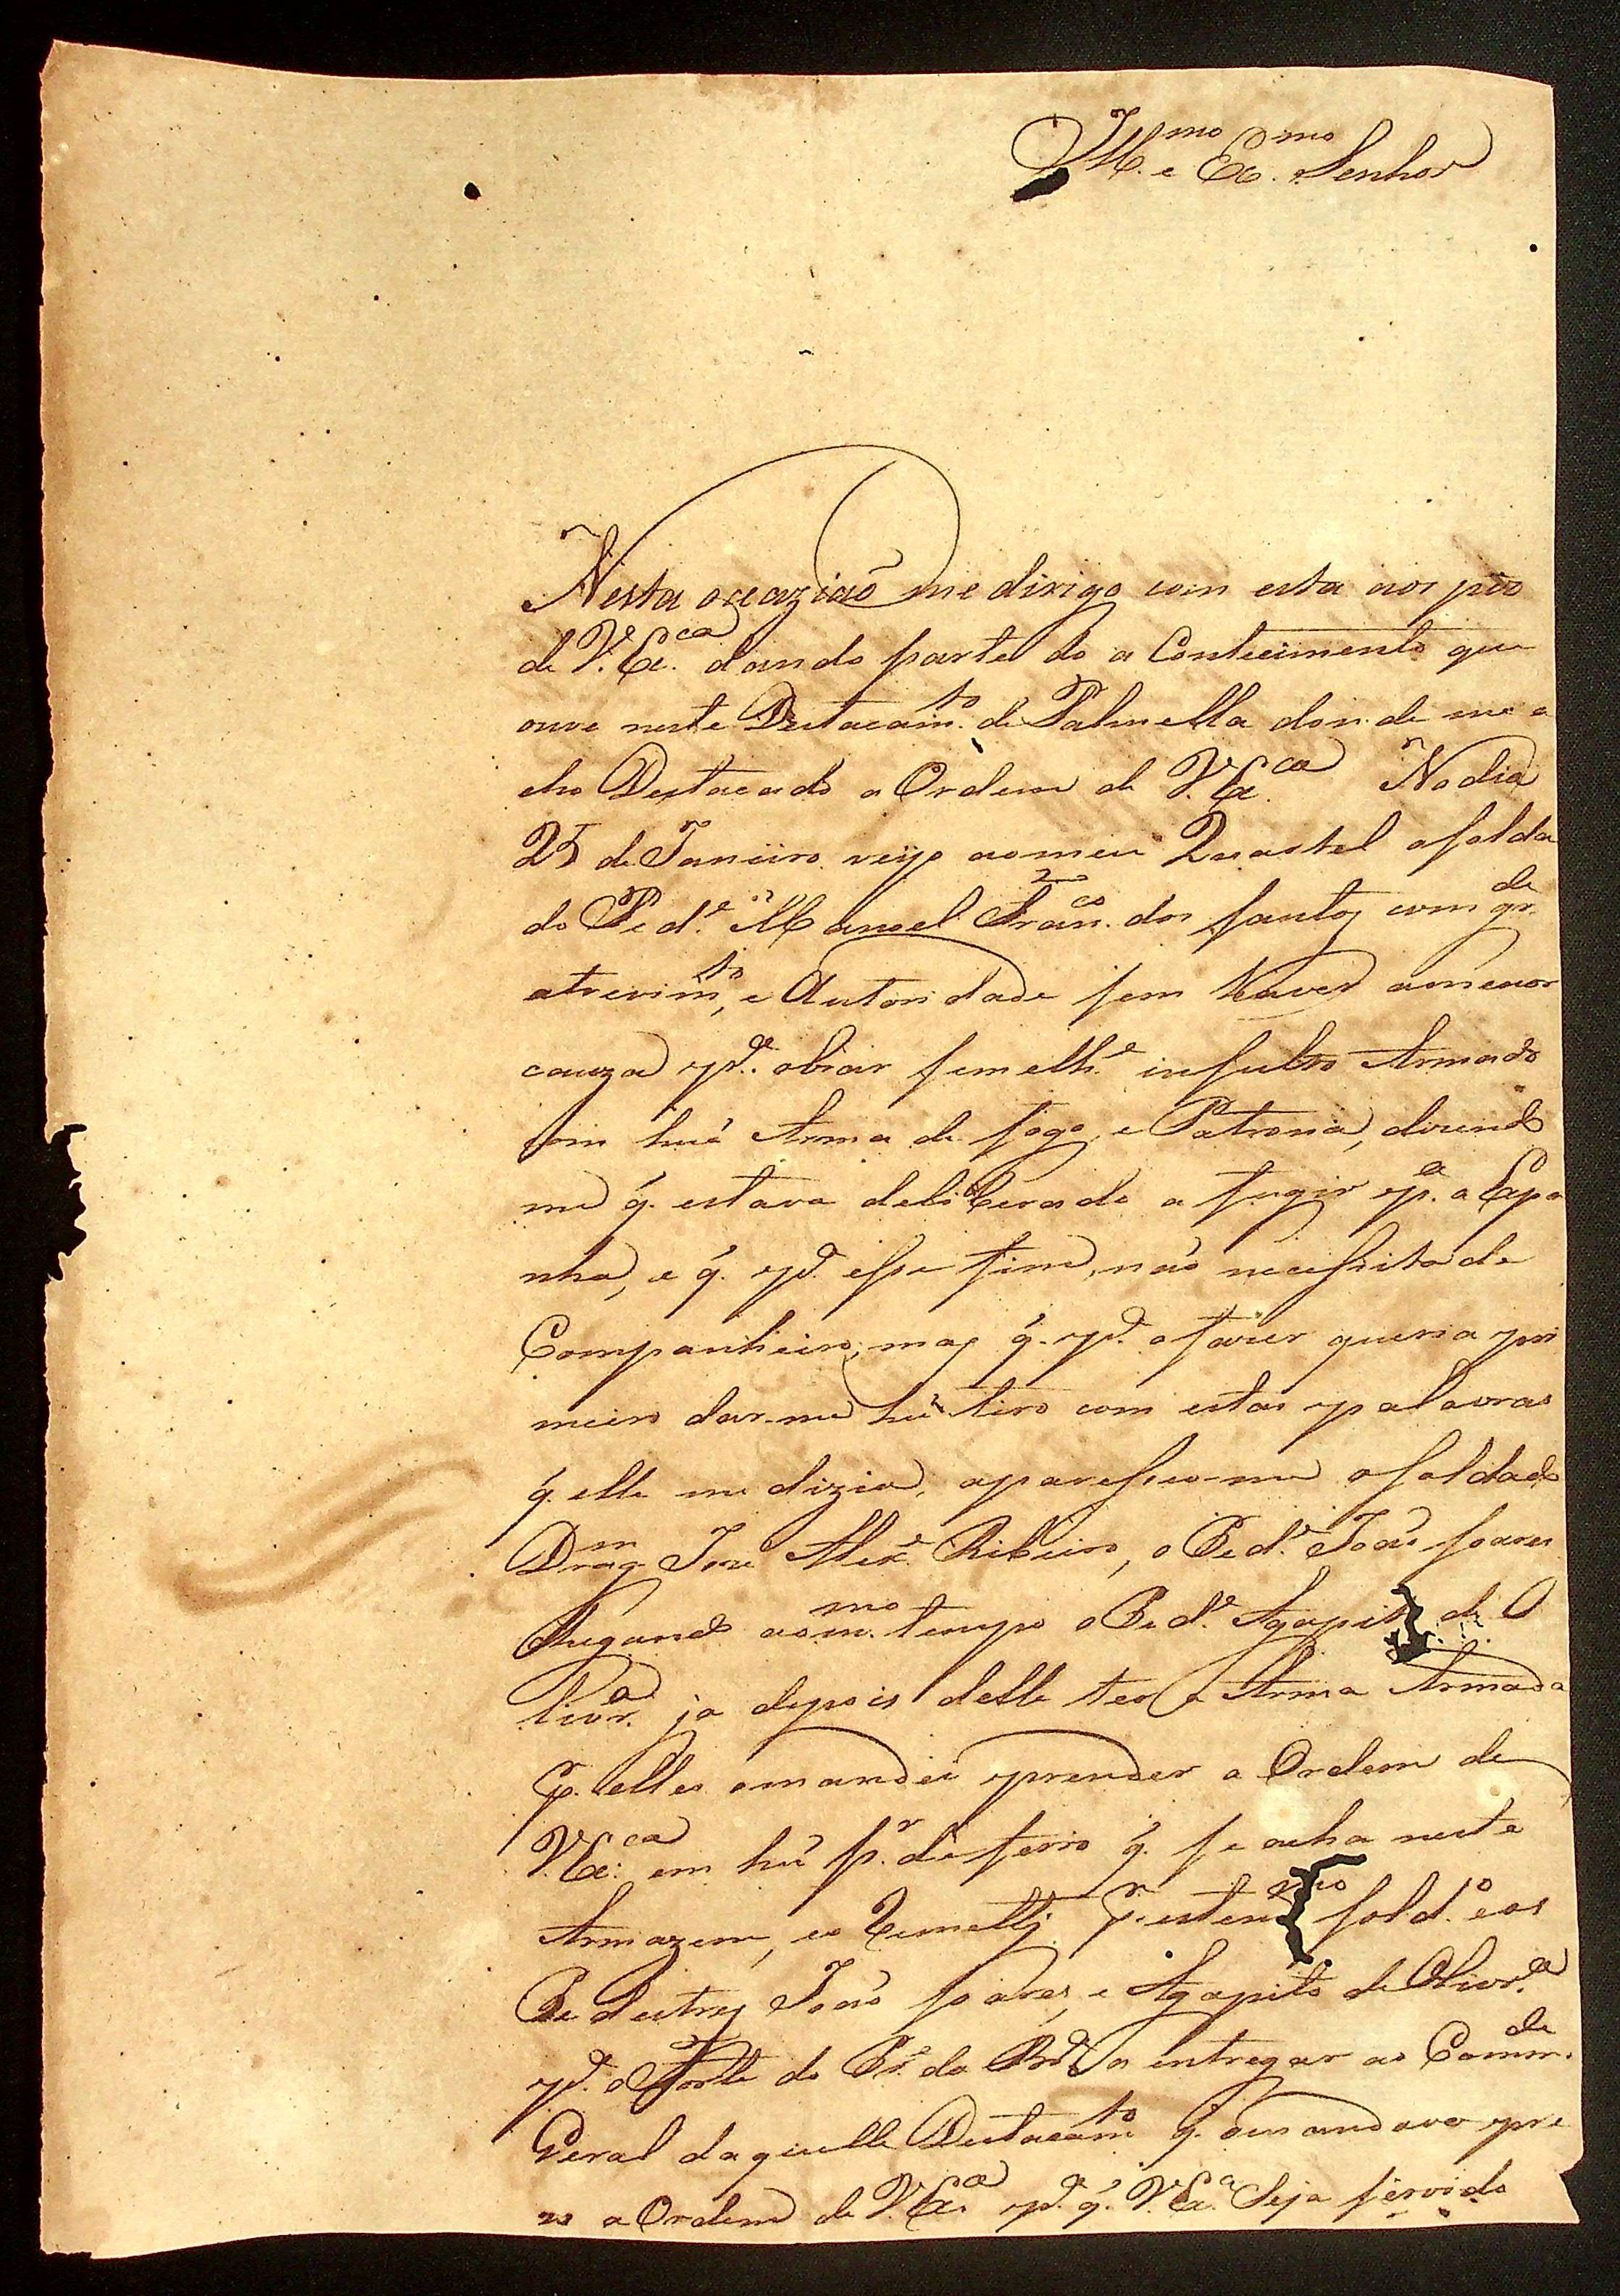 Ill.mo e Ex.mo Senhor
Nesta ocaziaõ me dirigo com esta aos pés
de V. Ex.ca dando parte do a Contecimento que
ouve neste Destacam.to de Palmella don de me a
cho Destacado a Ordem de V. Ex.ca No dia
25 de Janeiro veijo ao meu Quartel o solda
do Ped.e Manoel Fran.co dos santos com gr.de
atrevim.to, e Autoridade sem haver a menor
cauza p.a obrar semelh.e insulto Armado
com huã Arma de fogo, e Patrona, dizendo
me q. estava deliberado a fugir p.a a Espa
nha, e q. p.a esse fim, naõ necessita de
Companheiro, mas q. p.a o fazer queria pri
meiro dar-me hũ tiro com estas palavras
q. elle me dizia, aparesseo-me o soldado
Drag.m Joze Alex.e Ribeiro, o Ped.e Joaõ soares
chegando ao m.mo tempo o Ped.e Agapito de O
livr.a ja depois delle ter a Arma Armada
p. elles o mandei prender a Ordem de
V. Ex.ca em hũ p.r de ferro q. se acha neste
Armazem, e o Remetti p. este m.mo sold.o e os
Pedestres Joaõ soares, e Agapito de Olivr.a
p.a o Forte do Pr.e da a entregar ao Comm.de
Geral daquelle Destacam.to q. o mandava pre
zo a Ordem de V. Ex.ca p.a q. V. Ex.a Seja servido